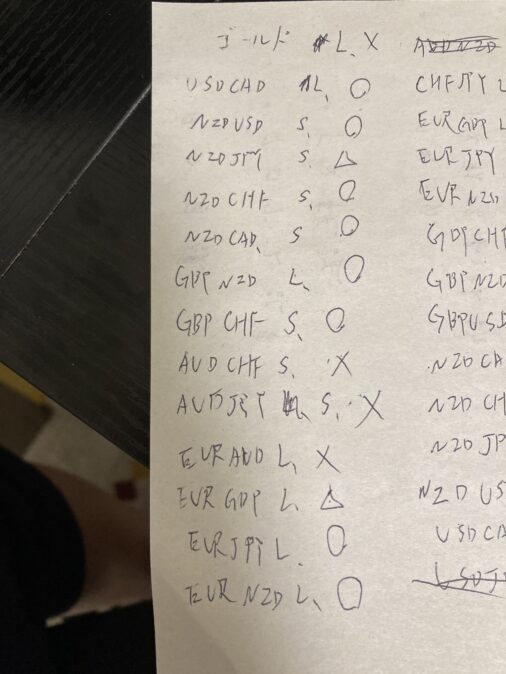 ゴールド L、X
USDCAD L、○
NZDUSD S、○
NZDJPY S、△
NZDCHF S、○
NZDCAD、S ○
GBPNZD L、○
GBPCHF S、○
AUDCHF S、X
AUDJPY S、X
EURAUD L、X
EURGDP L、△
EURJPY L、○
EURNZD L、○
AUDNZD
CHFJPY L
EURGDP L
EURJPY
EURNZD
GDPCHF
GBPNZD
GBPUSD
NZDCA
NZDCH
NZDJP
NZDUS
USDCA